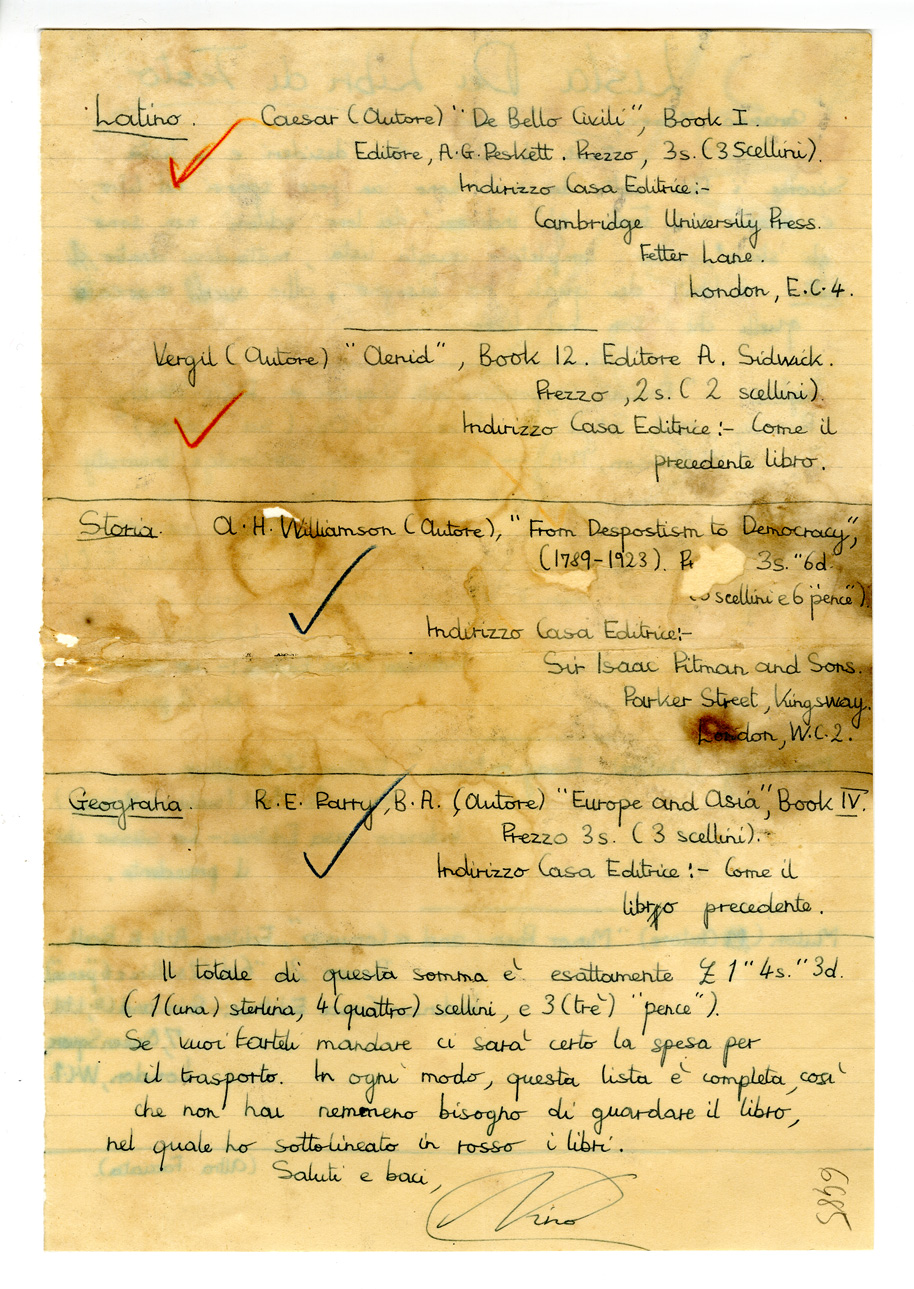 Latino. Caesar (Autore) "De Bello Civili", Book I.
Editore, A.G. Peskett. Prezzo, 3s. (3 Scellini).
Indirizzo Casa Editrice:-
Cambridge University Press.
Fetter Lane.
London, E.C.4.
Vergil (Autore) "Aenid", Book 12. Editore A. Sidwick.
Prezzo, 2s. (2 scellini).
Indirizzo Casa Editrice:- Come il
precedente libro.
Storia. A.H. Williamson (Autore), "From Despostism to Democracy",
(1789-1923). 3s."6d.
scellini e 6 "pence")
Indirizzo Casa Editrice:-
Sir Isaac Pitman and Sons.
Parker Street, Kingsway.
London, W.C.2.
Geografia. R.E. Parry, B.A. (Autore) "Europe and Asia", Book IV.
Prezzo 3s. (3 scellini).
Indirizzo Casa Editrice:- Come il
libro precedente.
Il totale di questa somma è esattamente £1"4s."3d.
(1 (una) sterlina, 4 (quattro) scellini, e 3 (trè) "pence").
Se vuoi farteli mandare ci sarà certo la spesa per
il trasporto. In ogni modo, questa lista è completa, così
che non hai nemmeno bisogno di guardare il libro,
nel quale ho sottolineato in rosso i libri.
Saluti e baci,
Nino
6485